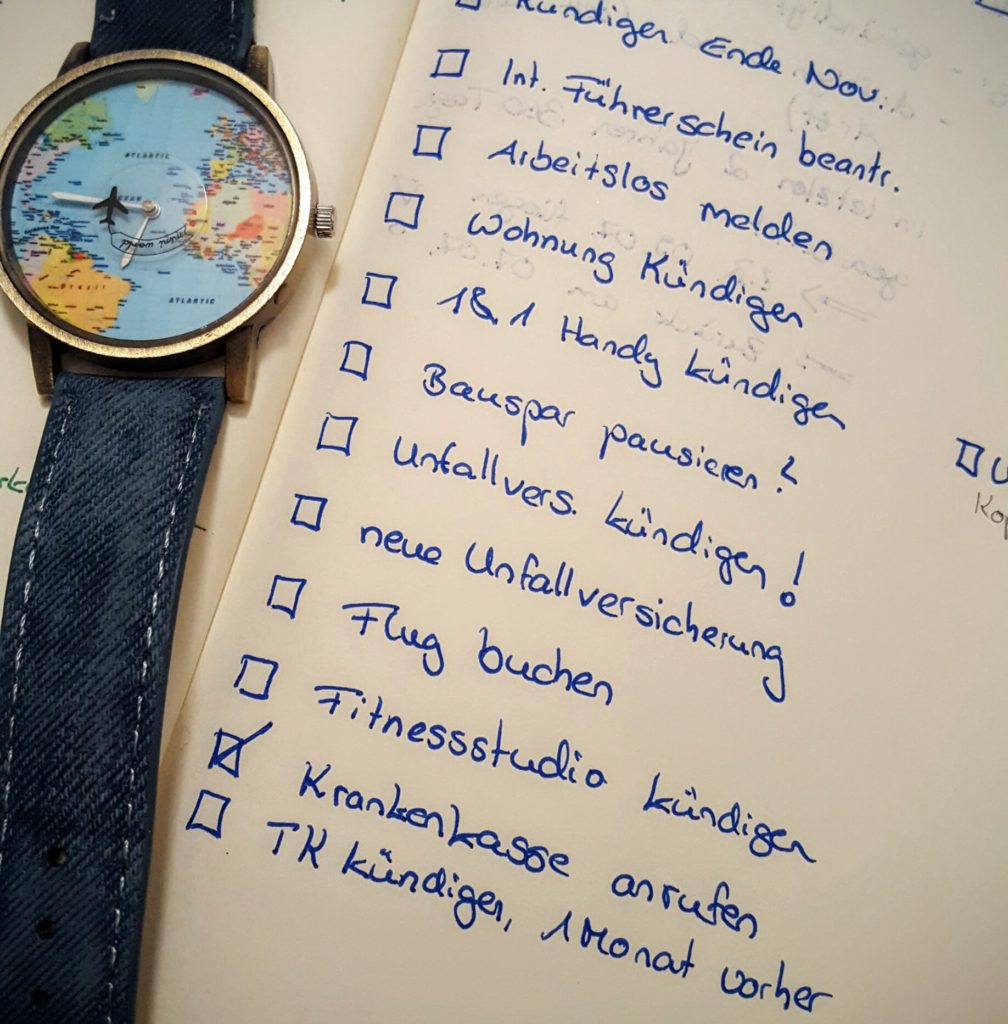 Kündigen Ende Nov.
Int. Führerschein beantr.
Arbeitslos melden
Wohnung Kündigen
1&1 Handy kündigen
Bauspar pausieren?
Unfallvers. kündigen!
neue Unfallversicherung
Flug buchen
Fitnessstudio kündigen
Krankenkasse anrufen
TK kündigen, 1 Monat vorher
ATLANTIC
mini world
Brazil
ATLANTIC